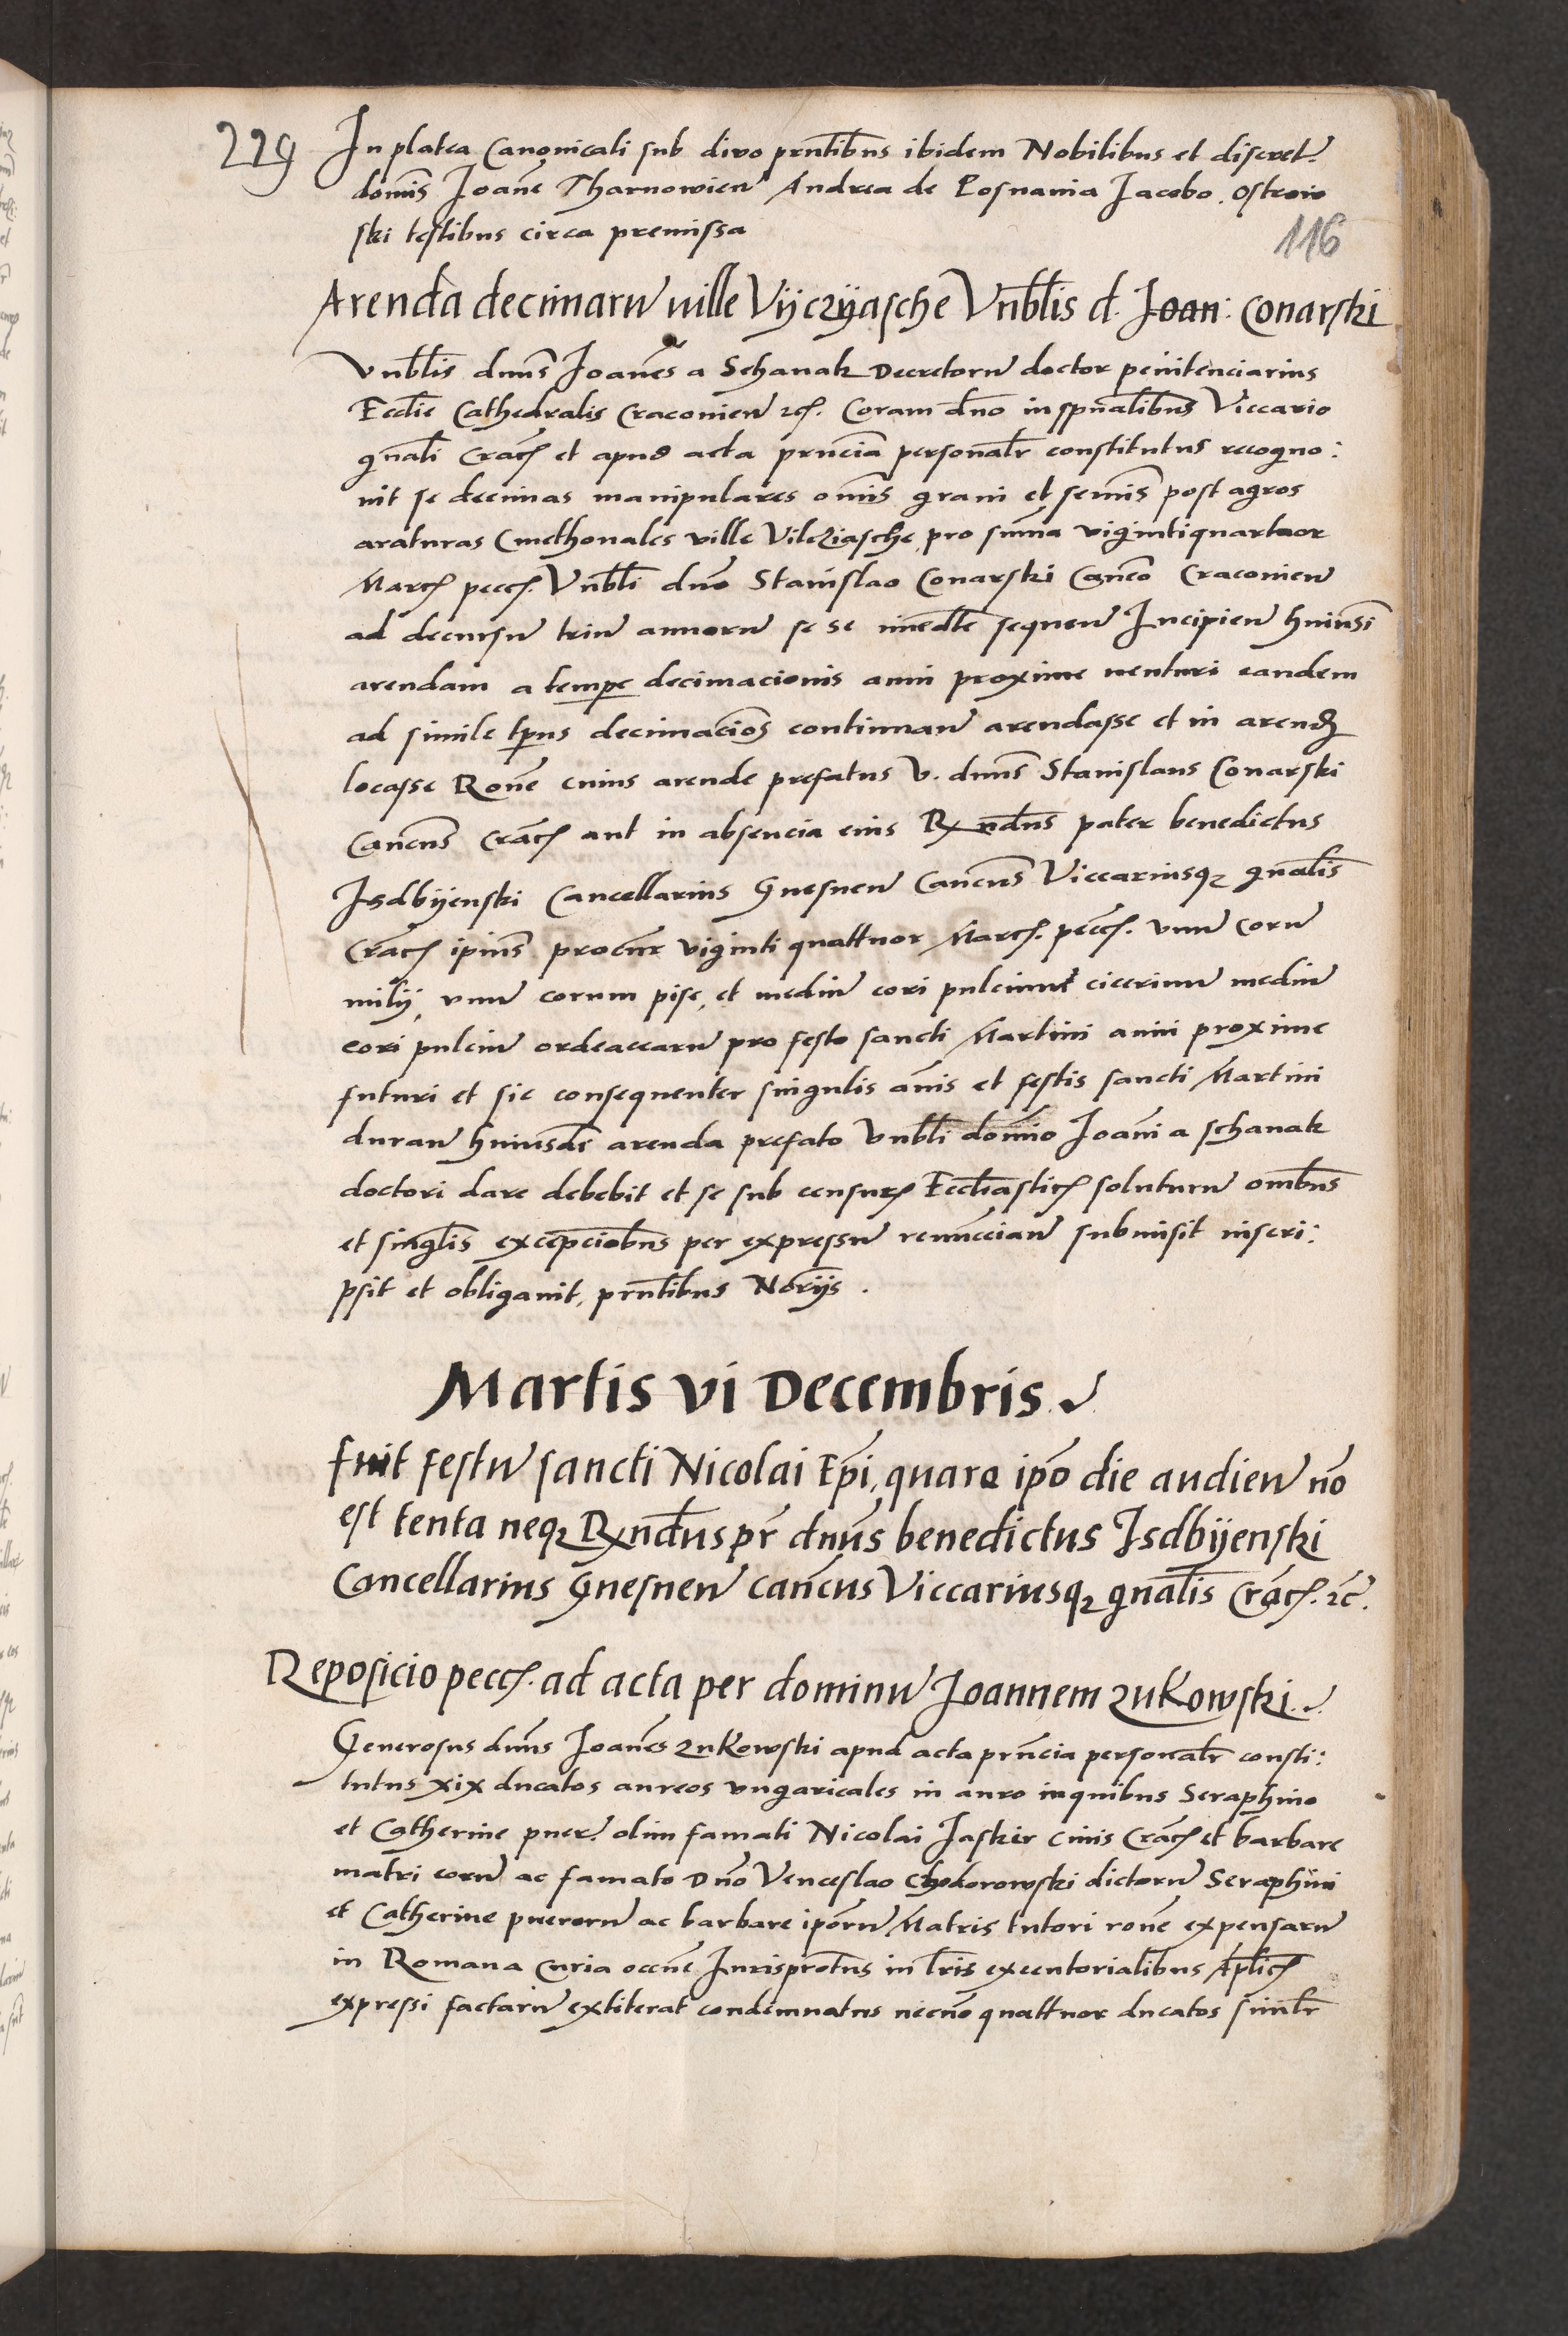 229
In platea Canonicali sub divo prntibus ibidem Nobilibus et discret.
domis Joane Tharnowien Andrea de Posnania Jacobo Ostrow
ski testibus circa premissa
116
Arenda decimarum ville Vyczyasche Vnblis d. Joan: Conarski
Vnblis dnus Joanes a Schanak Decretorum doctor penitenciarius
Ecclie Cathedralis Cracovien etc. Coram dno in spualibus Viccario
gnali Crac et apud acta prncia personalr constitutus recogno:
vit se decimas manipulares omis grani et semis post agros
araturas Cmethonales ville Vilcziasche pro suma viginti quattuor
Marc pecc. Vnbli dno Stanislao Conarski Canco Cracovien
ad decursum trium annorum se se imedte sequen Incipien huiusmi
arendam a tempe decimacionis anni proxime venturi eandem
ad simile tpus decimacios continuan arendasse et in arend
locasse Rone cuius arende prefatus V. dnus Stanislaus Conarski
Cancus Crac aut in absencia eius Rndus pater benedictus
Isdbyenski Cancellarius Gnesnen Cancus Viccariusq gnalis
Crac ipius procur viginti quattuor Marc. pecc. vnum corum
milij, vnum corum pise, et medium cori pulcium cicerium medium
cori pulcium ordeaccarum pro festo sancti Martini anni proxime
futuri et sic consequenter singulis anis et festis sancti Martini
duran huiusdi arenda prefato Vnbli domio Joani a schanak
doctori dare debebit et se sub censuris Eccliastic soluturum ombus
et singlis excepciobus per expressum renunccian submisit inscri:
psit et obligavit, prntibus Norijs.
Martis vi Decembris
Fuit festum sancti Nicolai Epi, quare ipo die audien no
est tenta neq Rndus pr dnus benedictus Isdbyenski
Cancellarius Gnesnen cancus Viccariusq gnalis Crac. etc.
Reposicio pecc. ad acta per dominum Joannem Zukowski
Generosus dnus Joanes Zukowski apud acta prncia personalr consti:
tutus xix ducatos aureos vngaricales in auro in quibus Seraphino
et Catherine puer. olim famati Nicolai Jaskier civis Crac et barbare
matri eorum ac famato Dno Venceslao Chodorowski dictorum Seraphini
et Catherine puerorum ac barbare iporum Matris tutori rone expensarum
in Romana Curia occne Jurisprotus in lris executorialibus Aplic
expressi factarum extiterat condemnatus necno quattuor ducatos similr